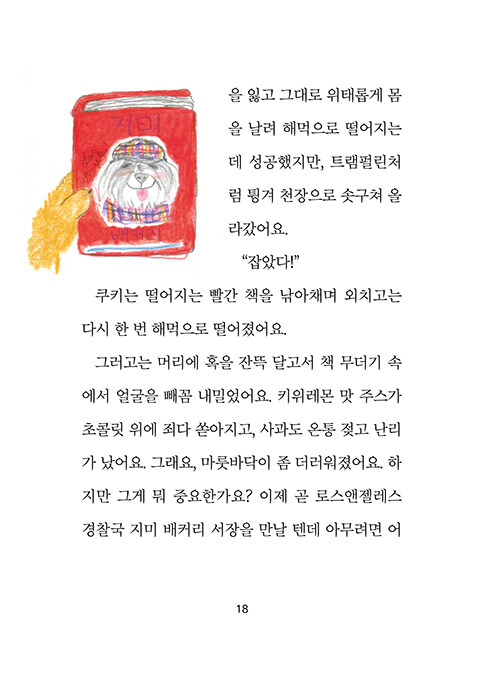 지미
배커리
을 잃고 그대로 위태롭게 몸
을 날려 해먹으로 떨어지는
데 성공했지만, 트램펄린처
럼 튕겨 천장으로 솟구쳐 올
라갔어요.
“잡았다!”
쿠키는 떨어지는 빨간 책을 낚아채며 외치고는
다시 한 번 해먹으로 떨어졌어요.
그러고는 머리에 혹을 잔뜩 달고서 책 무더기 속
에서 얼굴을 빼꼼 내밀었어요. 키위레몬 맛 주스가
초콜릿 위에 죄다 쏟아지고, 사과도 온통 젖고 난리
가 났어요. 그래요, 마룻바닥이 좀 더러워졌어요. 하
지만 그게 뭐 중요한가요? 이제 곧 로스앤젤레스
경찰국 지미 배커리 서장을 만날 텐데 아무려면 어
18